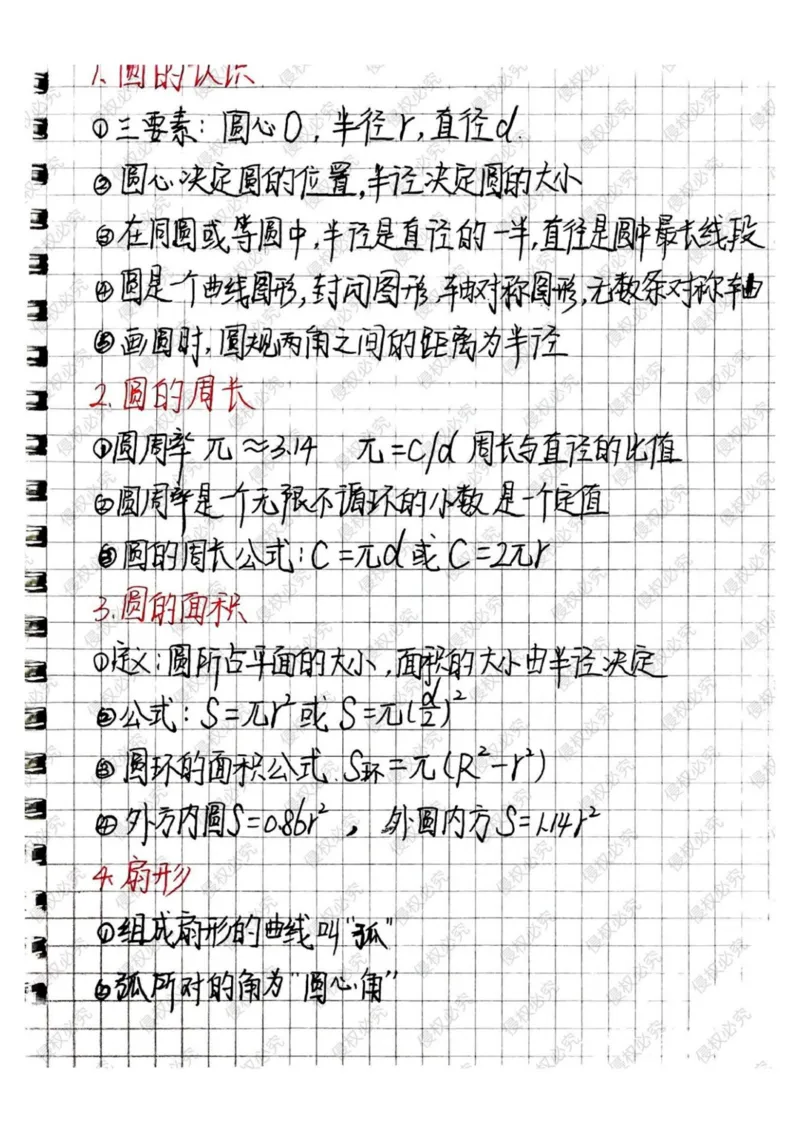 1.圆的认识
①三要素：圆心O，半径r，直径d.
②圆心决定圆的位置，半径决定圆的大小
③在同圆或等圆中，半径是直径的一半，直径是圆中最长线段
④圆是个曲线图形，封闭图形，轴对称图形，无数条对称轴
⑤画圆时，圆规两角之间的距离为半径
2.圆的周长
①圆周率π≈3.14 π=C/d 周长与直径的比值
②圆周率是一个无限不循环的小数是一个定值
③圆的周长公式：C=πd或C=2πr
3.圆的面积
①定义：圆所占平面的大小，面积的大小由半径决定
②公式：S=πr²或S=π(d/2)²
③圆环的面积公式.S环=π(R²-r²)
④外方内圆S=0.86r²，外圆内方S=1.14r²
4.扇形
①组成扇形的曲线叫"弧"
②弧所对的角为"圆心角"
侵权必究